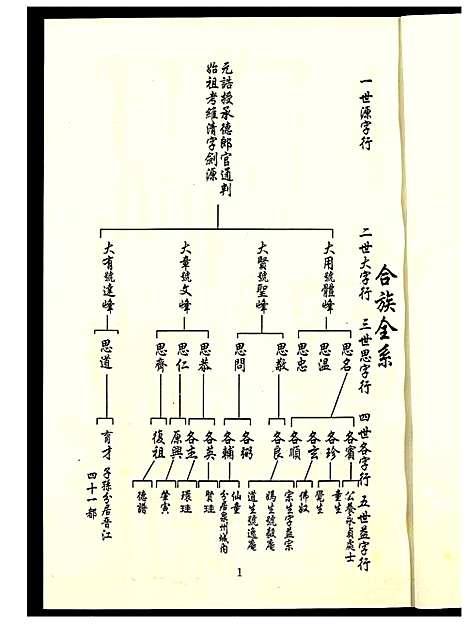 合族全系
一世源字行
二世大字行
三世思字行
四世各字行
五世益字行
元誥授承德郎官通判
始祖考維清字劍源
大用號體峰
大賢號聖峰
大章號文峰
大有號達峰
思名
思溫
思忠
思敬
思問
思恭
思仁
思齊
思道
各賓
各珍
各玄
各順
各良
各弼
各輔
各英
各主
原興
復祖
育才
子孫分居晉江
四十一都
公養承貞處士
童生
覺生
佛奴
宗生字益宗
媽生號毅庵
道生號逸庵
仙童
分居泉州城內
賢珪
環珪
榮寅
德譜
1